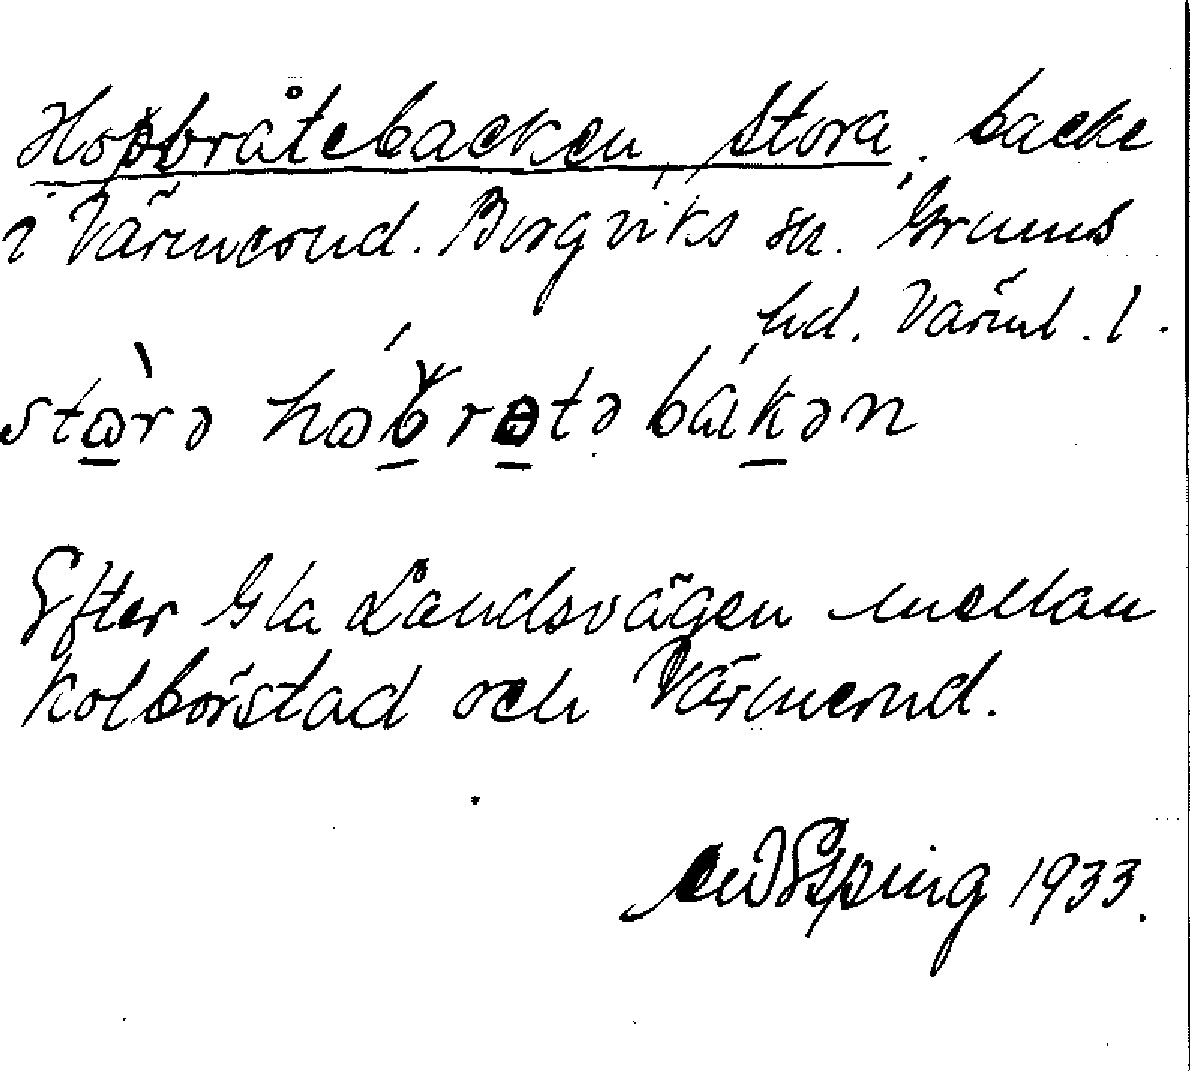 Hobbråtebacken, Stora, backe
i Värmerud. Borgviks sn. Grums
hd. Värml. l.
stɷ̀rə hɷbrɵtəbakən
Efter Gla Landsvägen mellan
Kolbörstad och Värmerud.
Esping 1933.